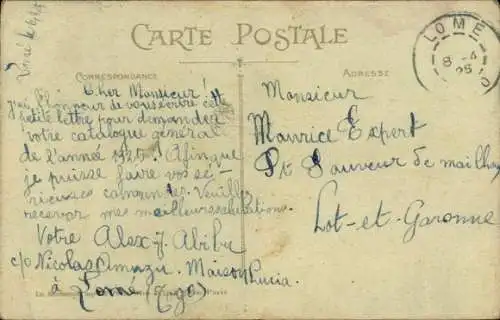 CARTE POSTALE
CORRESPONDANCE
ADRESSE
LOME
8 - 4
25
Cher Monsieur!
J'ai l'honneur de vous écrire cette
petite lettre pour demander
votre catalogue général
de l'année 1925. Afinque
je puisse faire vos sé-
rieuses commandes. Veuillez
recevoir mes meilleurs salutations.
Votre Alex J. Abibu
c/o Nicolas Amuzu. Maison Lucia.
à Lomé (Togo)
Monsieur
Maurice Expert
St Sauveur de meilhan
Lot-et-Garonne